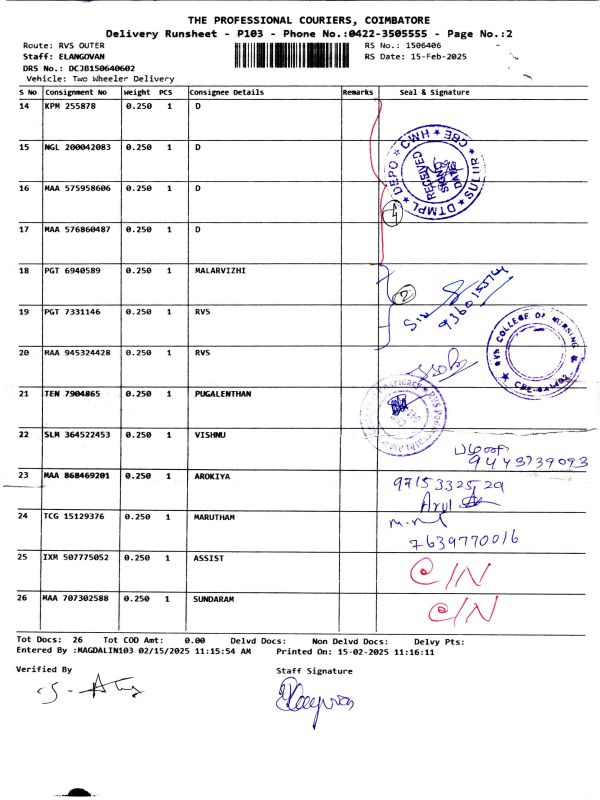 THE PROFESSIONAL COURIERS, COIMBATORE
Delivery Runsheet - P103 - Phone No.:0422-3505555 - Page No.:2
Route: RVS OUTER
RS No.: 1506406
Staff: ELANGOVAN
RS Date: 15-Feb-2025
DRS No.: DCJB150640602
Vehicle: Two Wheeler Delivery
S No Consignment No Weight PCS Consignee Details Remarks Seal & Signature
14 KPM 255878 0.250 1 D
15 NGL 200042083 0.250 1 D
16 MAA 575958606 0.250 1 D
17 MAA 576860487 0.250 1 D
18 PGT 6940589 0.250 1 MALARVIZHI
19 PGT 7331146 0.250 1 RVS
20 MAA 945324428 0.250 1 RVS
21 TEN 7904865 0.250 1 PUGALENTHAN
22 SLM 364522453 0.250 1 VISHNU
9443739093
23 MAA 868469201 0.250 1 AROKIYA
9715332529
Arul
24 TCG 15129376 0.250 1 MARUTHAM
7639770016
25 IXM 507775052 0.250 1 ASSIST
C/N
26 MAA 707302588 0.250 1 SUNDARAM
C/N
DTMPL
DEPO
CWH
CBE
RECEIVED
4
2
RVS COLLEGE OF NURSING
Tot Docs: 26 Tot COD Amt: 0.00 Delvd Docs: Non Delvd Docs: Delvy Pts:
Entered By :MAGDALIN103 02/15/2025 11:15:54 AM Printed On: 15-02-2025 11:16:11
Verified By
Staff Signature